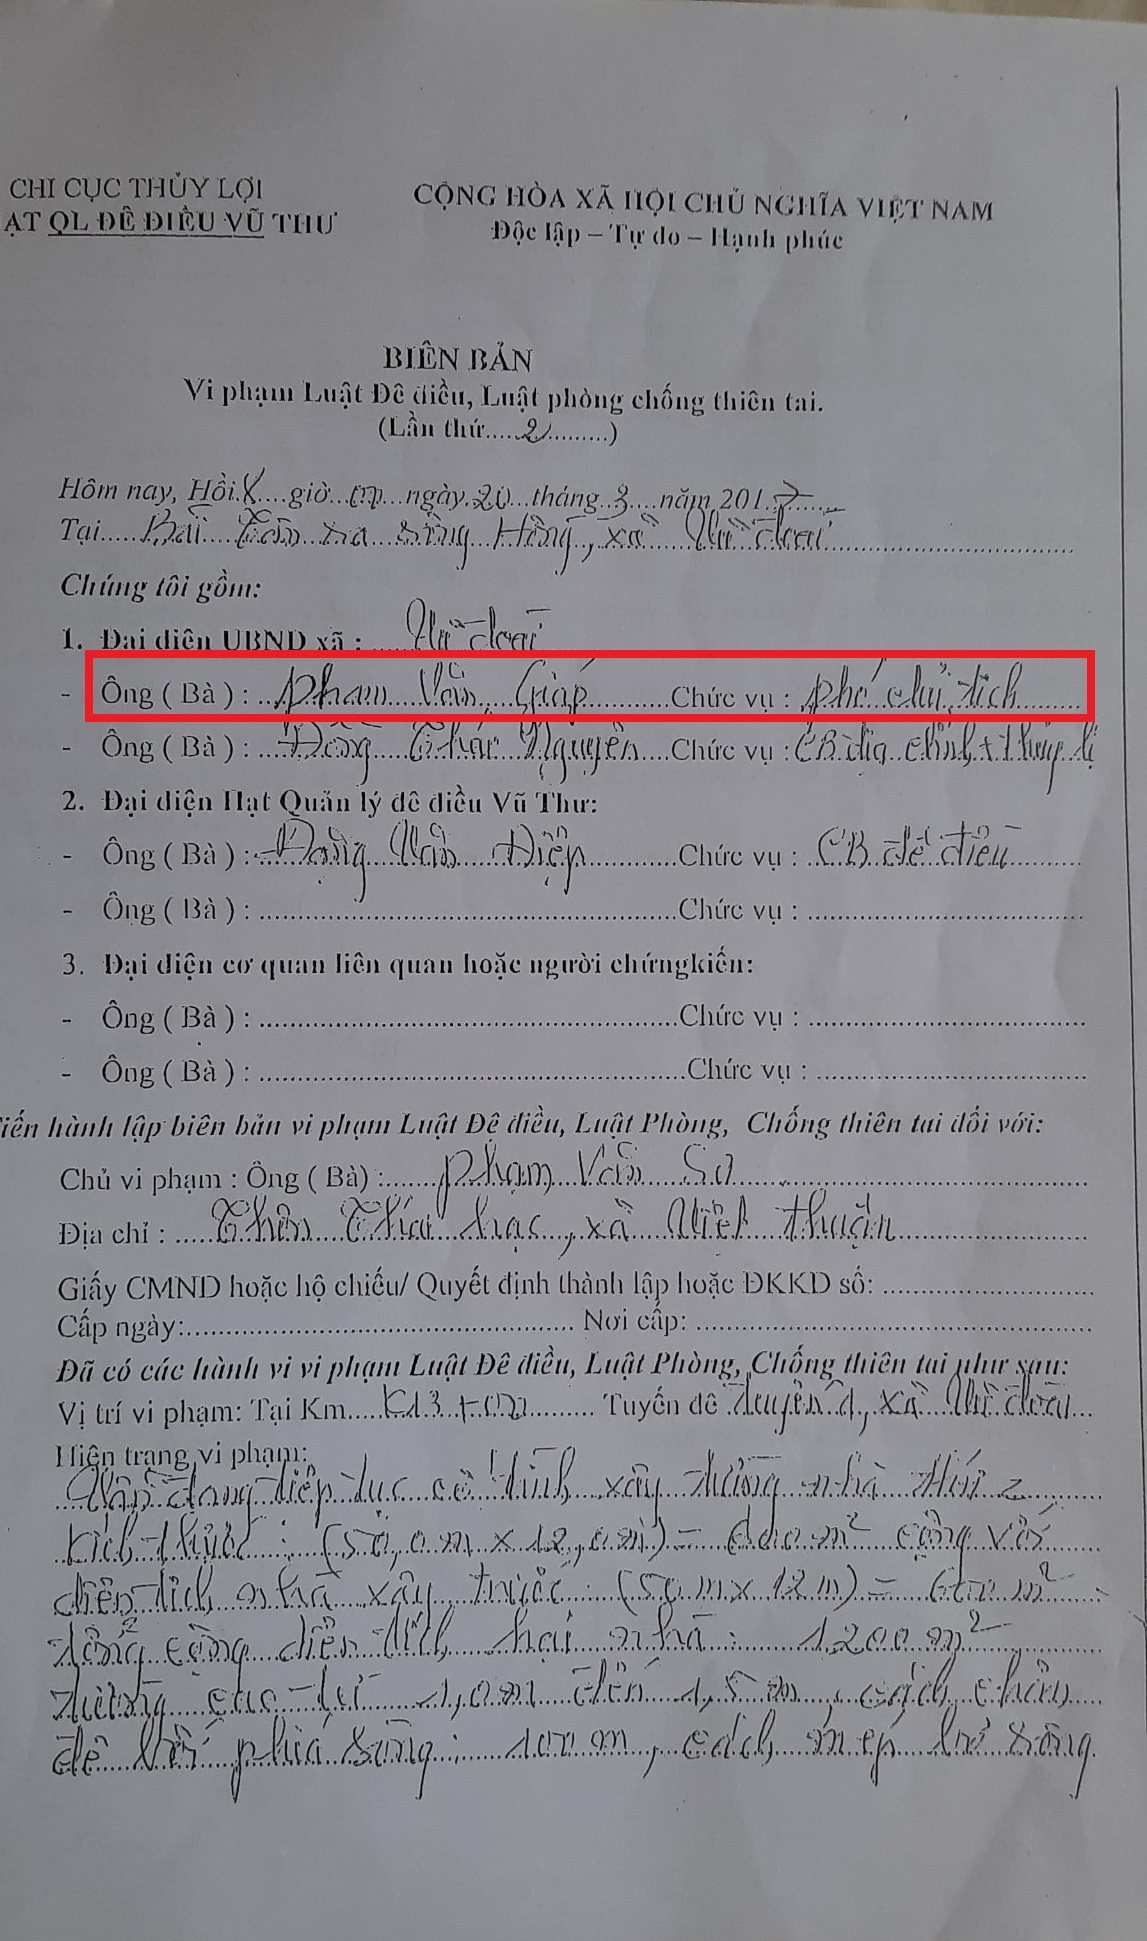 CHI CỤC THỦY LỢI
ẠT QL ĐÊ ĐIỀU VŨ THƯ
CỘNG HÒA XÃ HỘI CHỦ NGHĨA VIỆT NAM
Độc lập – Tự do – Hạnh phúc
BIÊN BẢN
Vi phạm Luật Đê điều, Luật phòng chống thiên tai.
(Lần thứ.....2..........)
Hôm nay, Hồi 8 giờ 00 ngày 20 tháng 3 năm 2017
Tại Bãi ven sông Hồng, xã Vũ Đoài
Chúng tôi gồm:
1. Đại diện UBND xã : Vũ Đoài
- Ông ( Bà ) : Phạm Văn Giáp Chức vụ : phó chủ tịch
- Ông ( Bà ) : Thái Nguyên Chức vụ : CB địa chính + thủy lợi
2. Đại diện Hạt Quản lý đê điều Vũ Thư:
- Ông ( Bà ) : Đặng Văn Điệp Chức vụ : CB đê điều
- Ông ( Bà ) : Chức vụ :
3. Đại diện cơ quan liên quan hoặc người chứngkiến:
- Ông ( Bà ) : Chức vụ :
- Ông ( Bà ) : Chức vụ :
iến hành lập biên bản vi phạm Luật Đê điều, Luật Phòng, Chống thiên tai đối với:
Chủ vi phạm : Ông ( Bà) : Phạm Văn
Địa chỉ : Thôn Thái Hạc, xã Việt Thuận
Giấy CMND hoặc hộ chiếu/ Quyết định thành lập hoặc ĐKKD số:
Cấp ngày: Nơi cấp:
Đã có các hành vi vi phạm Luật Đê điều, Luật Phòng, Chống thiên tai như sau:
Vị trí vi phạm: Tại Km K13+00 Tuyến đê xã Vũ Đoài
Hiện trạng vi phạm:
Vẫn đang tiếp tục cố tình xây tường nhà thứ 2
kích thước : (50,0m x 12,0m) = 600m² cộng với
diện tích nhà xây trước (50m x 12m) = 600m²
tổng cộng diện tích hai nhà : 1200m²
tường cao từ 1,0m đến 1,5m, cách chân
đê phía sông : 100m, cách mép bờ sông